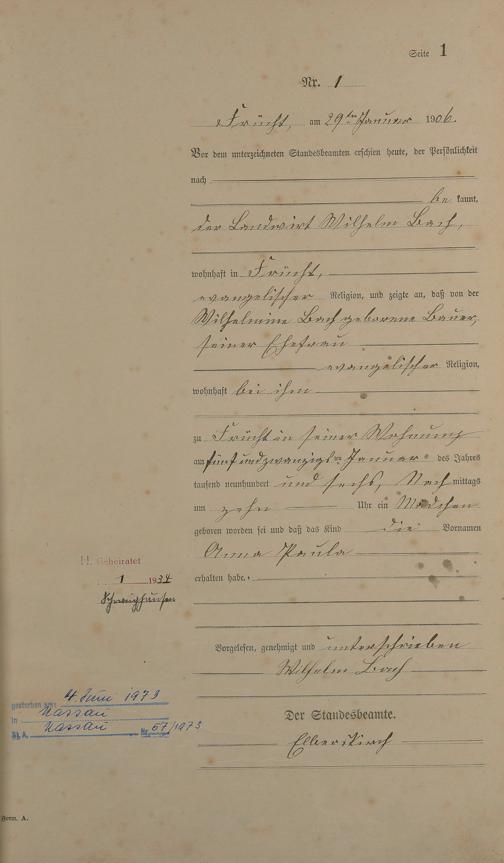 Seite 1
Nr. 1
Frücht, am 29ten Januar 1906.
Vor dem unterzeichneten Standesbeamten erschien heute, der Persönlichkeit
nach
be kannt,
der Landwirt Wilhelm Bach,
wohnhaft in Frücht,
evangelischer Religion, und zeigte an, daß von der
Wilhelmine Bach geborene Bauer,
seiner Ehefrau
evangelischer Religion,
wohnhaft bei ihm
zu Frücht in seiner Wohnung
am fünfundzwanzigsten Januar des Jahres
tausend neunhundert und sechs, Nach mittags
um zehn Uhr ein Mädchen
geboren worden sei und daß das Kind die Vornamen
Anna Paula
erhalten habe.
H. Geheiratet
1 1934
Schweighausen
Vorgelesen, genehmigt und unterschrieben
Wilhelm Bach
gestorben am: 4. Juni 1973
in Nassau
St. A. Nassau Nr. 67/1973
Der Standesbeamte.
Elberskirch
Form. A.